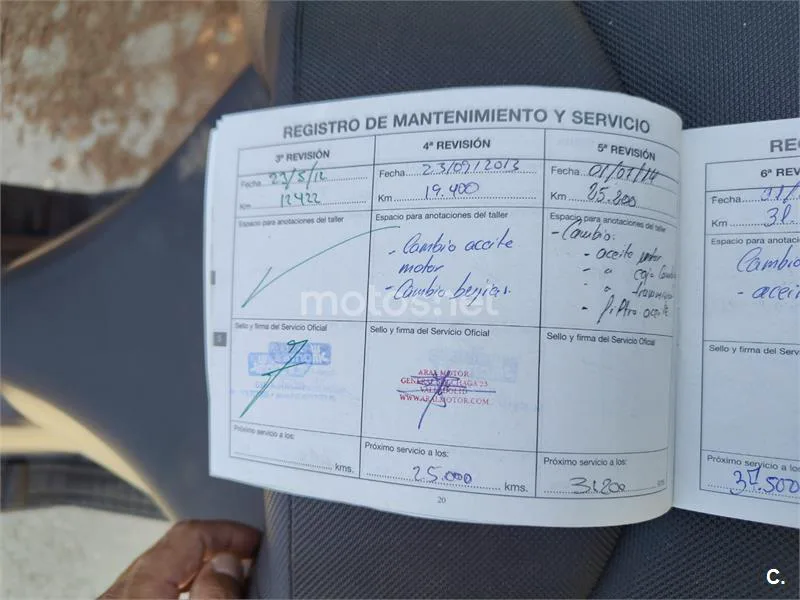 REGISTRO DE MANTENIMIENTO Y SERVICIO
3ª REVISIÓN
Fecha 23/5/12
Km 12422
Espacio para anotaciones del taller
Sello y firma del Servicio Oficial
Próximo servicio a los:
kms.
4ª REVISIÓN
Fecha 23/09/2013
Km 19.400
Espacio para anotaciones del taller
- Cambio aceite
motor
- Cambio bujias.
Sello y firma del Servicio Oficial
ARAL MOTOR
VALLADOLID
WWW.ARALMOTOR.COM
Próximo servicio a los:
25.000 kms.
5ª REVISIÓN
Fecha 01/07/14
Km 25.200
Espacio para anotaciones del taller
- Cambio:
- aceite motor
- " caja cambio
- " transmisión
- filtro aceite
Sello y firma del Servicio Oficial
Próximo servicio a los:
31.200 kms
20
RE
6ª REV
Fecha
Km 31.
Espacio para anotaci
Cambio
- aceit
Sello y firma del
Próximo servicio a los
37.500
motos.net
C.